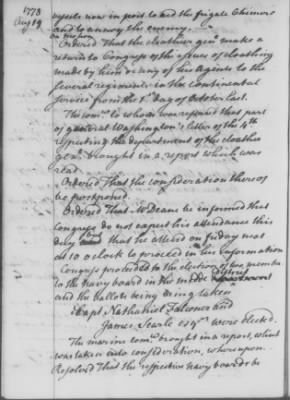 1778
Aug 19
vessels now in port to aid the frigate Chimere
and to annoy the enemy.
Ordered That the cloathier genl make a
return to Congress of the issues of cloathing
made by him or any of his Agents to the
several regiments in the continental
service from the 1st day of October last.
The comee to whom was referred that part
of general Washington's letter of the 4th
respecting the department of the cloather
genl brought in a report which was
read
Ordered That the consideration thereof
be postponed.
Ordered That Mr Deane be informed that
Congress do not expect his attendance this
day and that he attend on friday next
at 10 o clock to proceed in his information
Congress proceeded to the election of two members
to the Navy board in the middle district
and the ballots being taken
Capt Nathaniel Falconer and
James Searle esqr were elected.
The marine comee brought in a report, which
was taken into consideration, whereupon
Resolved That the respective navy boards be